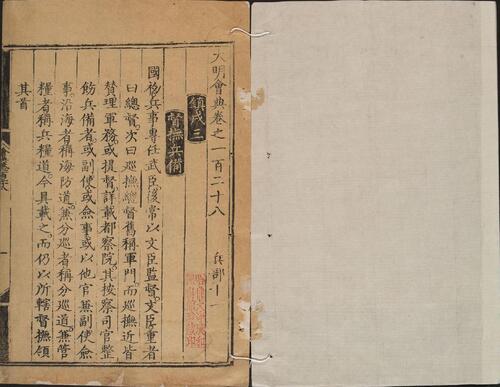 大明會典卷之一百二十八　兵部十一
鎮戍三
督撫兵備
國初兵事專任武臣後常以文臣監督文臣重者
曰總督次曰巡撫總督舊稱軍門而巡撫近皆
贊理軍務或提督詳載都察院其按察司官整
飭兵備者或副使或僉事或以他官兼副使僉
事沿海者稱海防道兼分巡者稱分巡道兼管
糧者稱兵糧道今具載之而仍以所轄督撫領
其首